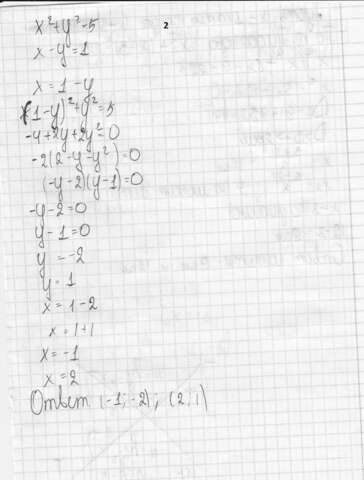 2
x² + y² = 5
x - y = 1
x = 1 - y
(1 - y)² + y² = 5
-4 + 2y + 2y² = 0
-2(2 - y - y²) = 0
(-y - 2)(y - 1) = 0
-y - 2 = 0
y - 1 = 0
y = -2
y = 1
x = 1 - 2
x = 1 + 1
x = -1
x = 2
Ответ (-1; -2); (2; 1)